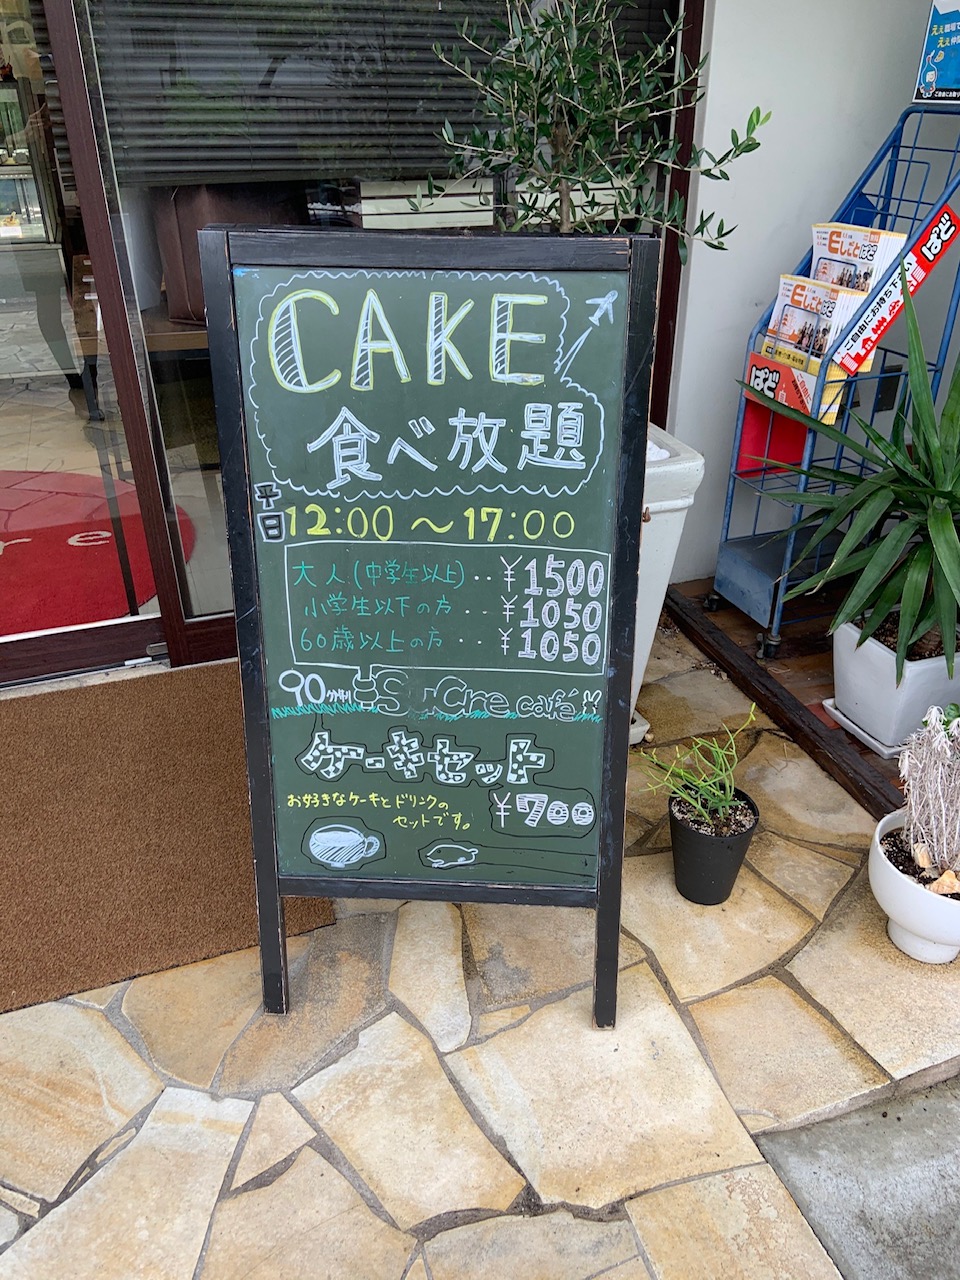 CAKE
食べ放題
平日 12:00 〜 17:00
大人(中学生以上)‥¥1500
小学生以下の方‥¥1050
60歳以上の方‥¥1050
90分制
SuCre café
ケーキセット
お好きなケーキとドリンクの
セットです。
¥700
re
えぇ職場で
えぇ仲間
Eしごとぱど
Eしごとぱど
ぱど
ぱど
ご自由にお持ち下さい